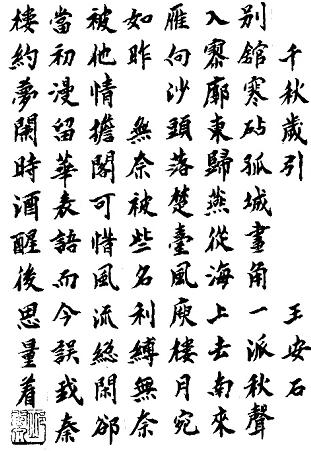 千秋歲引 王安石
別舘寒砧孤城畫角一派秋聲
入寥廓東歸燕從海上去南來
雁向沙頭落楚臺風庾樓月宛
如昨 無奈被些名利縛無奈
被他情擔閣可惜風流總閑卻
當初漫留華表語而今誤我秦
樓約夢闌時酒醒後思量着